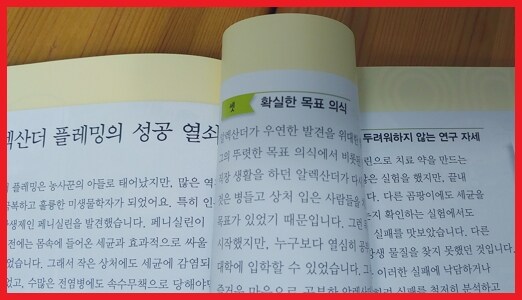 알렉산더 플레밍의 성공 열쇠
플레밍은 농사꾼의 아들로 태어났지만, 많은
극복하고 훌륭한 미생물학자가 되었어요. 특히 인
항생제인 페니실린을 발견했습니다. 페니실린이
전에는 몸속에 들어온 세균과 효과적으로 싸울
없었습니다. 그래서 작은 상처에도 세균에 감염되
있고, 수많은 전염병에도 속수무책으로 당해야
셋 확실한 목표 의식
알렉산더가 우연한 발견을 위대한
그의 뚜렷한 목표 의식에서 비롯
직장 생활을 하던 알렉산더가 다시
것은 병들고 상처 입은 사람들을
목표가 있었기 때문입니다. 그런
시작했지만, 누구보다 열심히 공
대학에 입학할 수 있었습니다.
즐거운 마음으로 공부한 알렉산
두려워하지 않는 연구 자세
린으로 치료 약을 만드는
많은 실험을 했지만, 끝내
다. 다른 곰팡이에도 세균을
는지 확인하는 실험에서도
실패를 맛보았습니다. 다른
항생 물질을 찾지 못했던 것입니다.
이러한 실패에 낙담하거나
실패를 철저히 분석하고